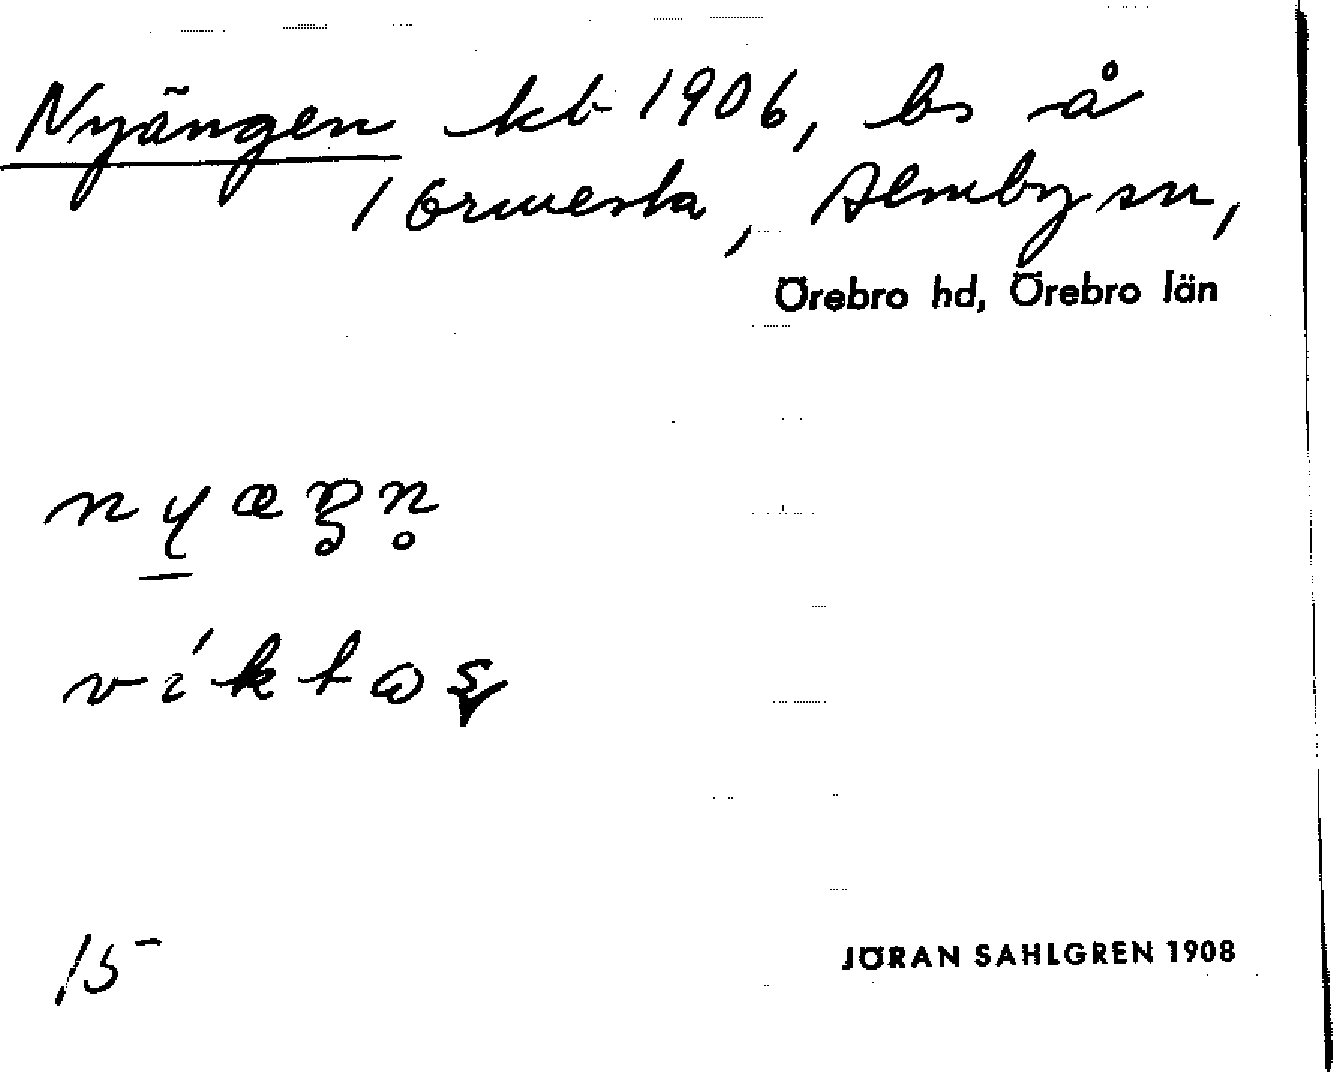 Nyängen kb 1906, bs å
1 Ormesta, Almby sn,
Örebro hd, Örebro län
nyæŋn̥
víktaʂ
15
JÖRAN SAHLGREN 1908